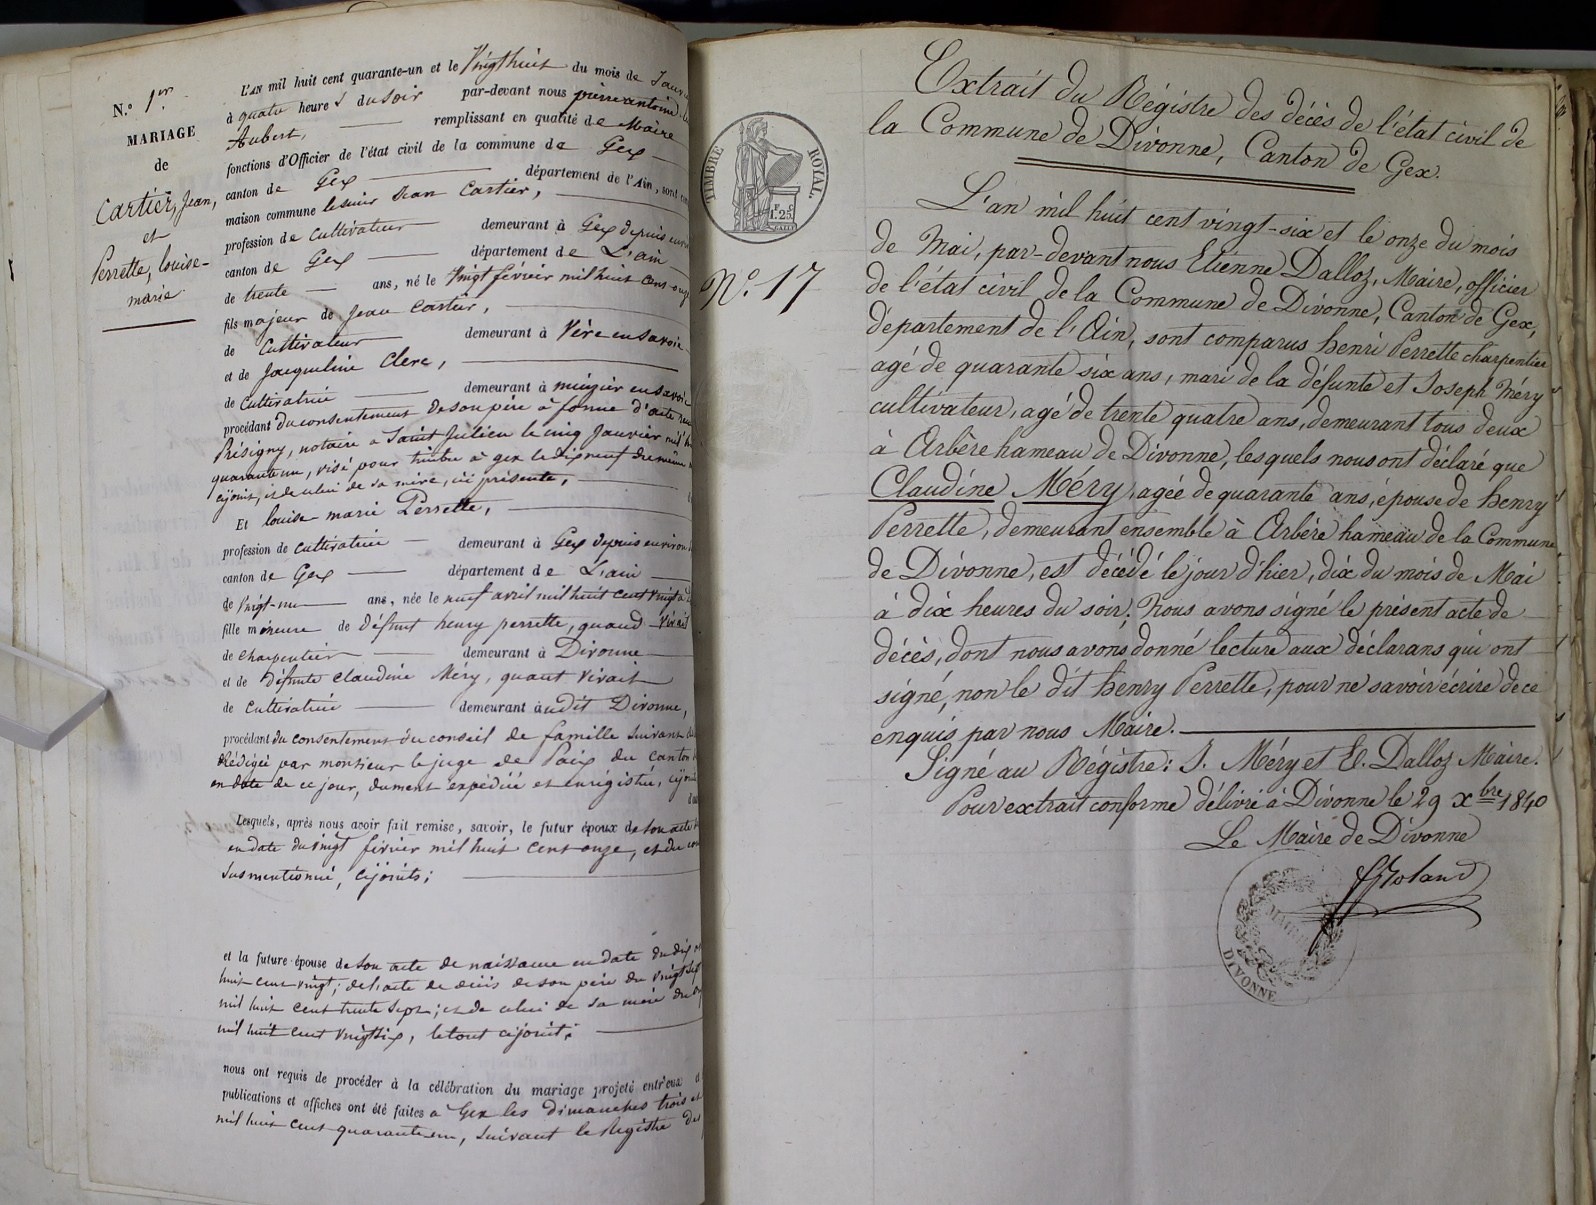 N.º 1er
MARIAGE
de
Cartier, Jean,
et
Perrette, louise-
marie
L'AN mil huit cent quarante-un et le Vingt huit du mois de Janv
à quatre heures du soir par-devant nous pierre antoine
Aubert, remplissant en qualité de Maire
fonctions d'Officier de l'état civil de la commune de Gex
canton de Gex département de l'Ain, sont
maison commune le sieur Jean Cartier,
profession de cultivateur demeurant à Gex depuis
canton de Gex département de L'ain
de trente ans, né le Vingt fevrier mil huit cent onze
fils majeur de Jean Cartier,
de Cultivateur demeurant à Vère en Savoie
et de Jacqueline Clerc,
de Cultivatrice demeurant à en Savoie
procédant du consentement de son père à forme d'acte
Présigny, notaire a Saint Julien le cinq Janvier mil
quarante un, visé pour timbre à gex le dix neuf du même
cijoint, et de celui de sa mère, ici présente,
Et louise marie Perrette,
profession de cultivatrice demeurant à Gex depuis environ
canton de Gex département de L'ain
de Vingt-un ans, née le neuf avril mil huit cent vingt
fille mineure de défunt henry perrette, quand vivait
de charpentier demeurant à Divonne
et de défunte Claudine Méry, quant vivait
de Cultivatrice demeurant àudit Divonne,
procédant du consentement du conseil de famille suivant
rédigée par monsieur le juge de Paix du canton
en date de ce jour, dument expédiée et enrégistrée, cijoint
Lesquels, après nous avoir fait remise, savoir, le futur époux de son acte
en date du vingt fevrier mil huit cent onze, et du
susmentionné, cijoints;
et la future épouse de son acte de naissance en date du dix
huit cent vingt; de l'acte de décès de son père du vingt sept
mil huit cent trente sept; et de celui de sa mère du
mil huit cent vingt six, le tout cijoint;
nous ont requis de procéder à la célébration du mariage projeté entr'eux
publications et affiches ont été faites a Gex les dimanches trois et
mil huit cent quarante un, suivant le Registre des
TIMBRE ROYAL.
Extrait du Régistre des décès de l'état civil de
la Commune de Divonne, Canton de Gex.
Nº. 17
L'an mil huit cent vingt-six et le onze du mois
de Mai, par-devant nous Etienne Dalloz, Maire, officier
de l'état civil de la Commune de Divonne, Canton de Gex,
département de l'Ain, sont comparus henri Perrette charpentier
agé de quarante six ans, mari de la défunte et Joseph Méry
cultivateur, agé de trente quatre ans, demeurant tous deux
à Arbère hameau de Divonne, lesquels nous ont déclaré que
Claudine Méry, agée de quarante ans, épouse de henry
Perrette, demeurant ensemble à Arbère hameau de la Commune
de Divonne, est décédé le jour d'hier, dix du mois de Mai
à dix heures du soir; Nous avons signé le présent acte de
décès, dont nous avons donné lecture aux déclarans qui ont
signé, non le dit henry Perrette, pour ne savoir écrire de ce
enquis par nous Maire.
Signé au Régistre: J. Méry et E. Dalloz Maire.
Pour extrait conforme délivré à Divonne le 29 Xbre 1840
Le Maire de Divonne
MAIRIE
DIVONNE